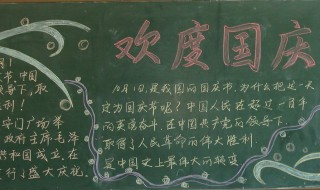 欢度国庆
月1
节,中国
导下,取
胜利!
安门广场举
政府主席毛泽
共和国成立,在
行了盛大庆礼。
十月一日,是我国的国庆节,为什么把这一天
定为国庆节呢?中国人民在经过一百多年
的英勇奋斗,在中国共产党的领导下,
取得了人民革命的伟大胜利
是中国史上最伟大的转变